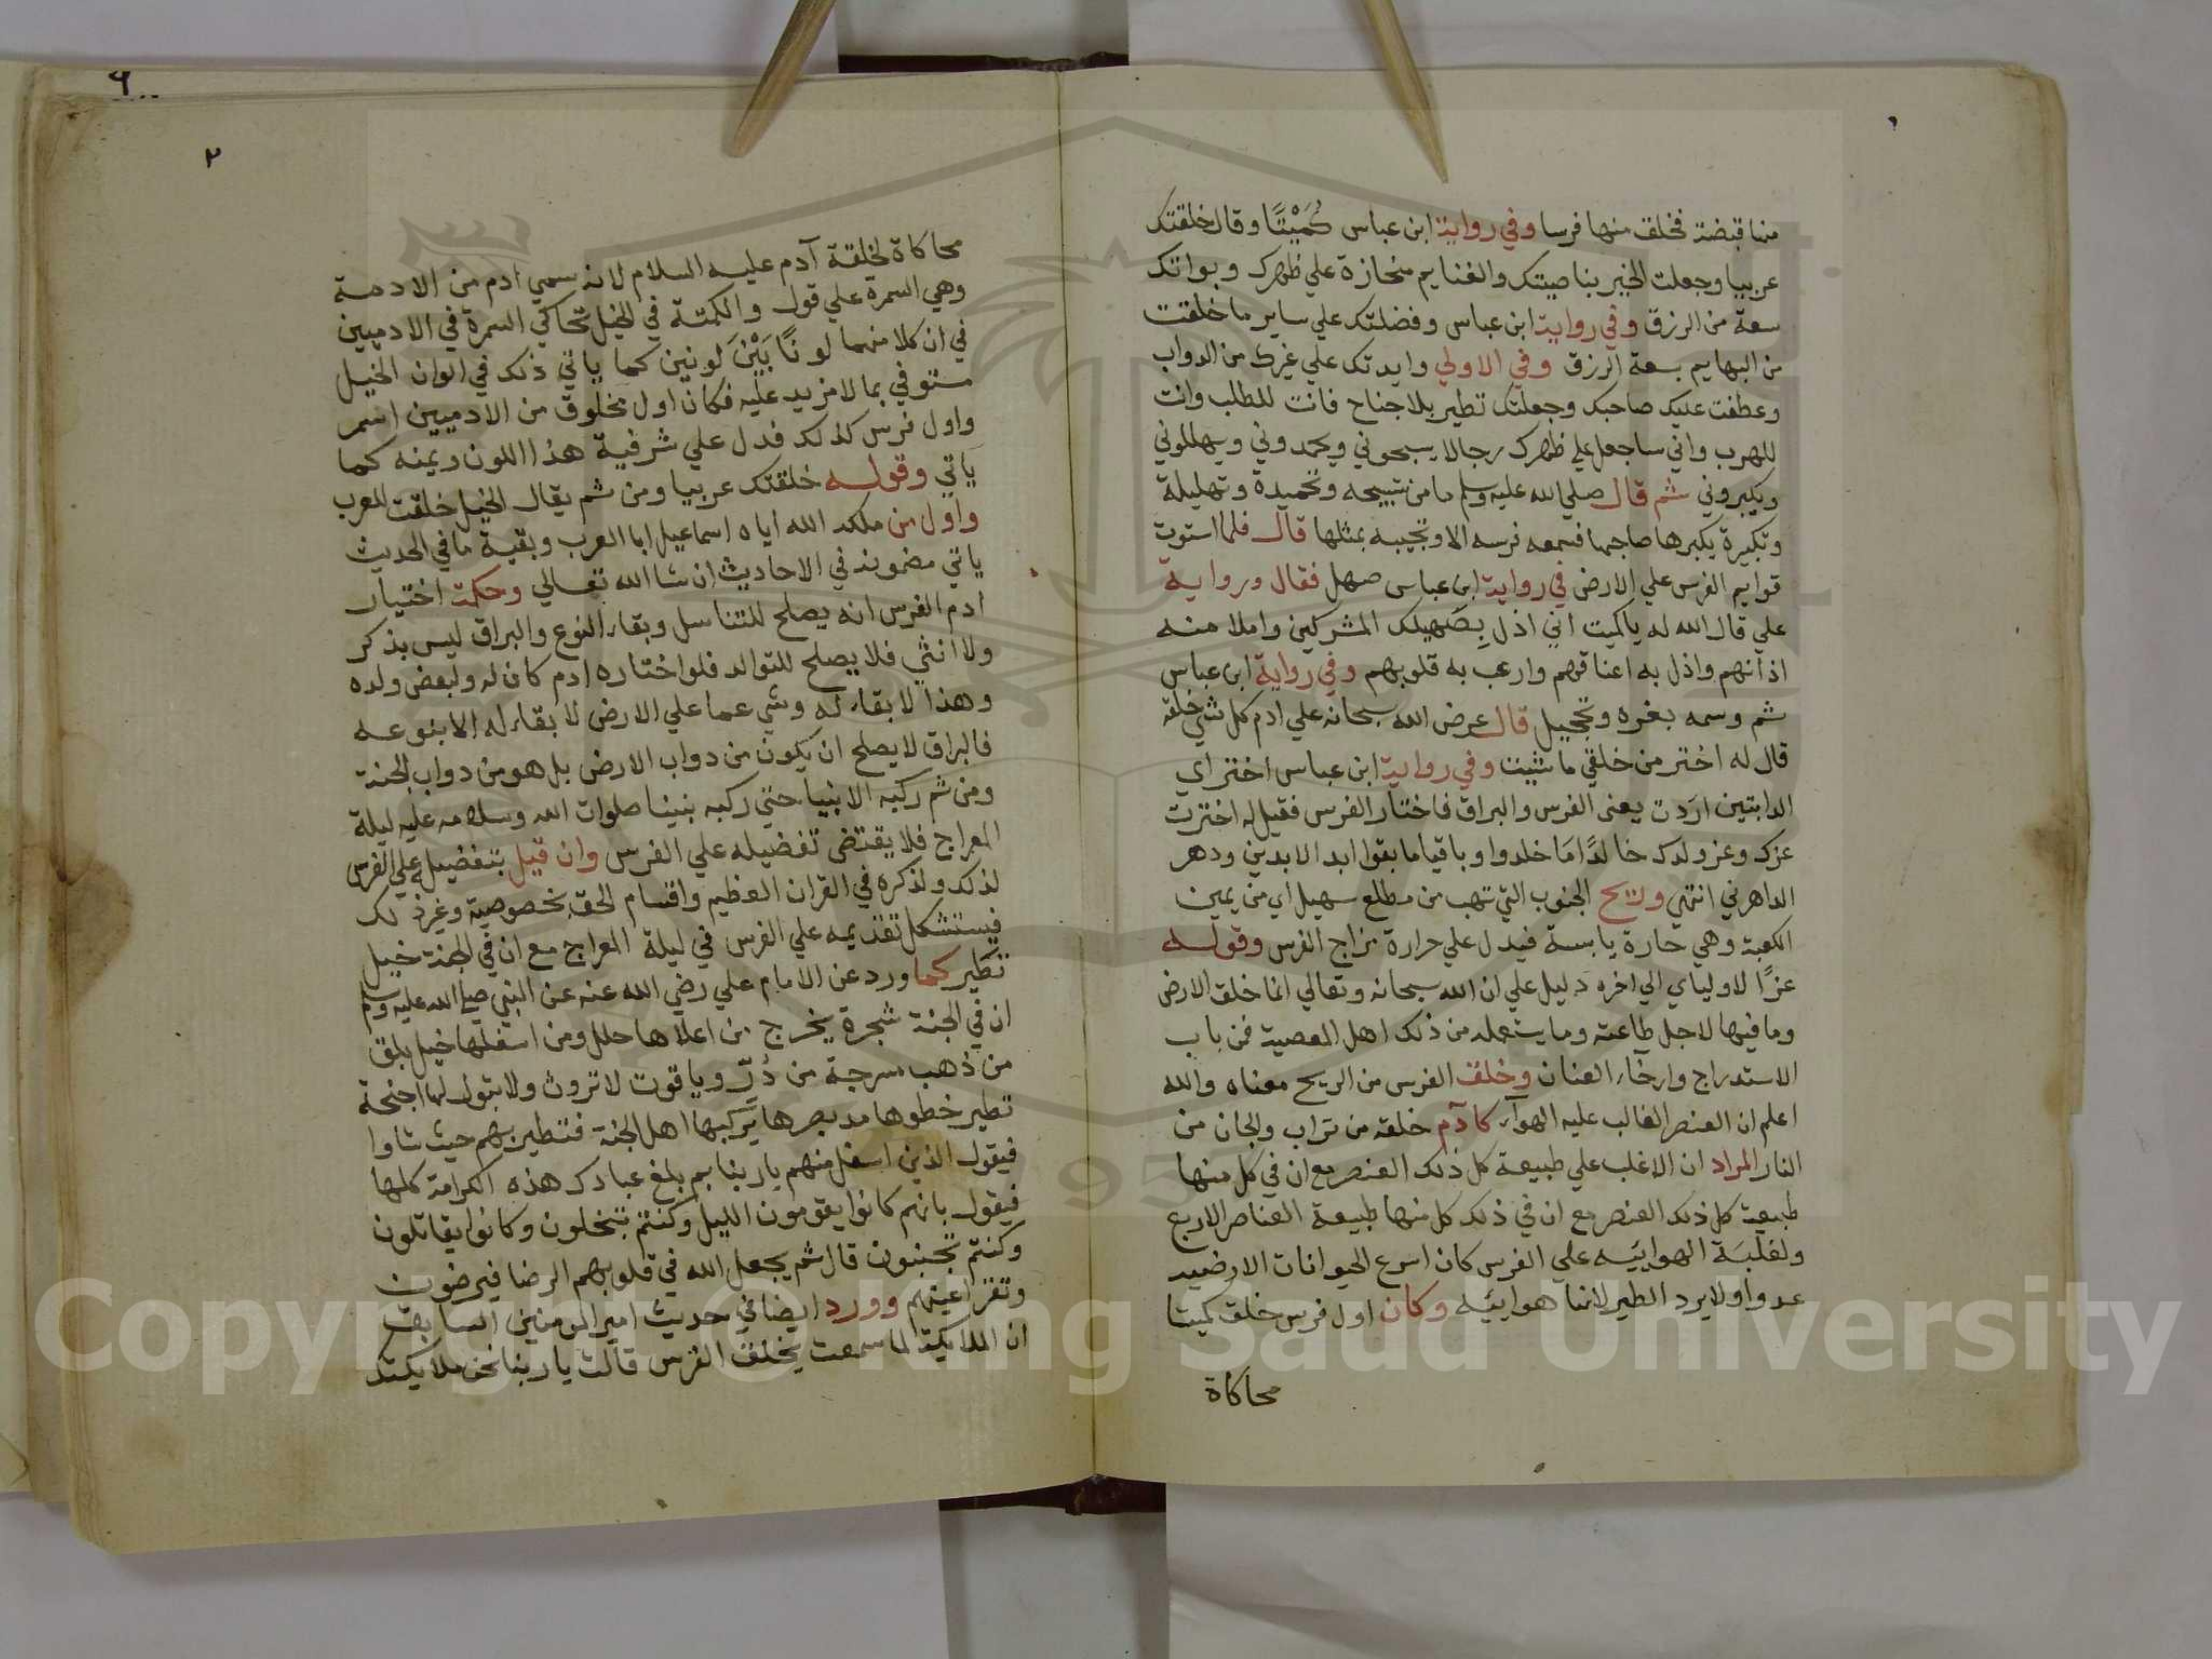 منها قبضة فخلق منها فرسا وفي رواية ابن عباس كُمَيْتًا وقال خلقتك
عربيا وجعلت الخير بناصيتك والغنايم منحازة علي ظهرك وبواتك
سعة من الرزق وفي رواية ابن عباس وفضلتك علي ساير ما خلقت
من البهايم بسعة الرزق وفي الاولي وايدتك علي غيرك من الدواب
وعطفت عليك صاحبك وجعلتك تطير بلا جناح فانت للطلب وانت
للهرب واني ساجعل علي ظهرك رجالا يسبحوني ويحمدوني ويهللوني
ويكبروني ثم قال صلي الله عليه وسلم ما من تسبيحه وتحميدة وتهليلة
وتكبيرة يكبرها صاحبها فسمعه فرسه الا وتجيبه بمثلها قال فلما استوت
قوايم الفرس علي الارض في رواية ابن عباس صهل فقال ورواية
علي قال الله له ياكميت اني اذل بِصَهيلك المشركين واملا منه
اذانهم واذل به اعناقهم وارعب به قلوبهم وفي رواية ابن عباس
ثم وسمه بغره وتحجيل قال عرض الله سبحانه علي ادم كل شي خلقه
قال له اختر من خلقي ما شيت وفي رواية ابن عباس اختر اي
الدابتين اردت يعني الفرس والبراق فاختار الفرس فقيل له اخترت
عزك وعز ولدك خالدًا مَا خلدوا وباقيا ما بقوا ابد الابدين ودهر
الداهرني انتهي وريح الجنوب التي تهب من مطلع سهيل اي من يمين
الكعبة وهي حارة يابسة فيدل علي حرارة مزاج الفرس وقوله
عزًا لاولياي الي اخره دليل علي ان الله سبحانه وتعالي انما خلق الارض
وما فيها لاجل طاعته وما يستعمله من ذلك اهل المعصية فمن باب
الاستدراج وارخاء العنان وخلق الفرس من الريح معناه والله
اعلم ان العنصر الغالب عليه الهوآء كما آدم خلقه من تراب والجان من
النار المراد ان الاغلب علي طبيعة كل ذلك العنصر مع ان في كل منها
طبيعة كل ذلك العنصر مع ان في ذلك كل منها طبيعة العناصر الاربع
ولغلبَة الهواييَه علي الفرس كان اسرع الحيوانات الارضيه
عدوا ولا يرد الطير لانها هواييَه وكان اول فرس خلق كميتا
محاكاة
٦
٢
محاكاة لخلقة آدم عليه السلام لانه سمي ادم من الادمة
وهي السمرة علي قول والكمتة في الخيل تحاكي السمرة في الادميين
في ان كلا منهما لونًا بَيْنَ لونين كما ياتي ذلك في الوان الخيل
مستوفي بما لا مزيد عليه فكان اول مخلوق من الادميين اسمر
واول فرس كذلك فدل علي شرفية هذا اللون ويمنه كما
يَاتي وقوله خلقتك عربيا ومن ثم يقال الخيل خلقت للعرب
واول من ملكه الله اياه اسماعيل ابا العرب وبقية ما في الحديث
ياتي مضمونه في الاحاديث ان شا الله تعالي وحكمة اختيار
ادم الفرس انه يصلح للتناسل وبقاء النوع والبراق ليس بذكر
ولا انثي فلا يصلح للتوالد فلو اختاره ادم كان له ولبعض ولده
وهذا لا بقاء له وشي عما علي الارض لا بقاء له الا بنوعه
فالبراق لا يصلح ان يكون من دواب الارض بل هو من دواب الجنة
ومن ثم ركبه الانبيا حتي ركبه نبينا صلوات الله وسلامه عليه ليلة
المعراج فلا يقتضي تفضيله علي الفرس وان قيل بتفضيله علي الفرس
لذلك ولذكره في القران العظيم واقسام الحق بخصوصية وغير ذلك
فيستشكل تقديمه علي الفرس في ليلة المعراج مع ان في الجنة خيل
تَطير كما ورد عن الامام علي رضي الله عنه عن النبي صلي الله عليه وسلم
ان في الجنة شجرة يخرج من اعلاها حلل ومن اسفلها خيل بلق
من ذهب مسرجة من دُرّ وياقوت لا تروث ولا تبول لها اجنحة
تطير خطوها مد بصرها يركبها اهل الجنة فتطير بهم حيث شاوا
فيقول الذين اسفل منهم ياربنا بم بلغ عبادك هذه الكرامة كلها
فيقول بانهم كانوا يقومون الليل وكنتم تبخلون وكانوا يقاتلون
وكنتم تجبنون قال ثم يجعل الله في قلوبهم الرضا فيرضون
وتقر اعينهم وورد ايضا في حديث امير المومنين السابق
ان الملايكة لما سمعت بخلق الفرس قالت ياربنا نحن ملايكتك
Copyright © King Saud University